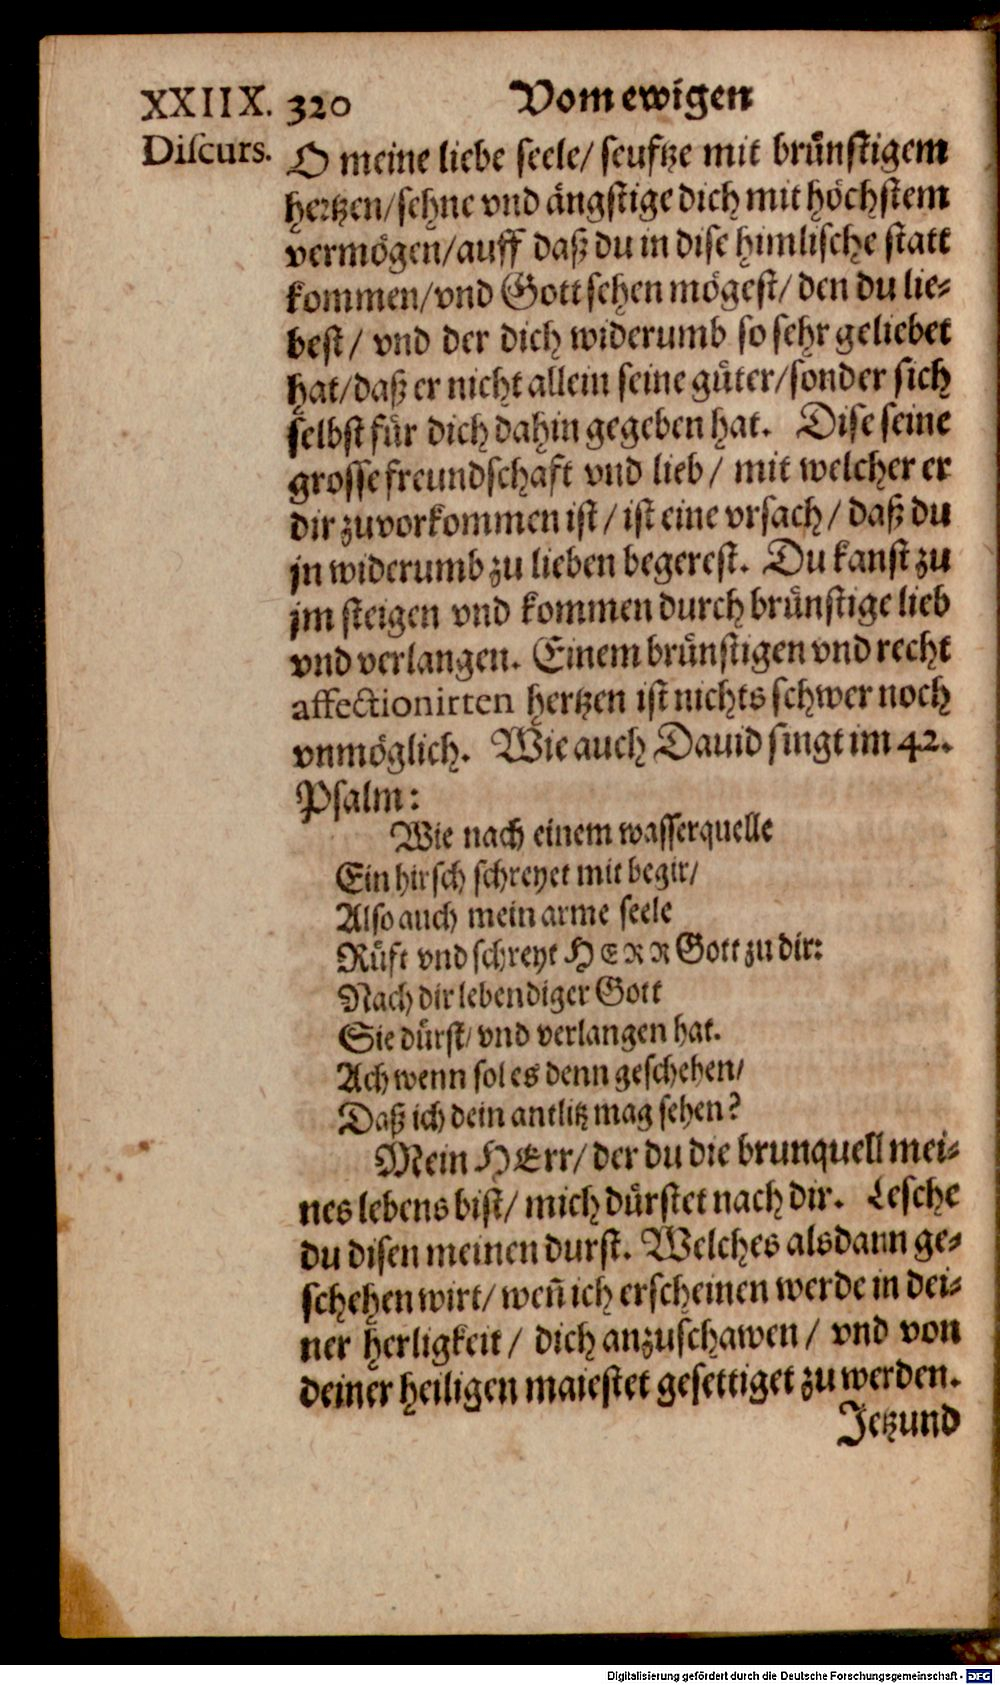 XXIIX. 320 Vom ewigen
Discurs.
O meine liebe seele/ seuftze mit brünstigem
hertzen/sehne vnd ängstige dich mit höchstem
vermögen/auff daß du in dise himlische statt
kommen/vnd Gott sehen mögest/ den du lie-
best/ vnd der dich widerumb so sehr geliebet
hat/daß er nicht allein seine güter/sonder sich
selbst für dich dahin gegeben hat. Dise seine
grosse freundschaft vnd lieb/ mit welcher er
dir zuvorkommen ist/ ist eine vrsach/ daß du
jn widerumb zu lieben begerest. Du kanst zu
jm steigen vnd kommen durch brünstige lieb
vnd verlangen. Einem brünstigen vnd recht
affectionirten hertzen ist nichts schwer noch
vnmöglich. Wie auch Dauid singt im 42.
Psalm:
Wie nach einem wasserquelle
Ein hirsch schreyet mit begir/
Also auch mein arme seele
Rüft vnd schreyt HERR Gott zu dir:
Nach dir lebendiger Gott
Sie dürst/ vnd verlangen hat.
Ach wenn sol es denn geschehen/
Daß ich dein antlitz mag sehen?
Mein HErr/ der du die brunquell mei-
nes lebens bist/ mich dürstet nach dir. Lesche
du disen meinen durst. Welches alsdann ge-
schehen wirt/ weñ ich erscheinen werde in dei-
ner herligkeit/ dich anzuschawen/ vnd von
deiner heiligen maiestet gesettiget zu werden.
Jetzund
Digitalisierung gefördert durch die Deutsche Forschungsgemeinschaft - DFG